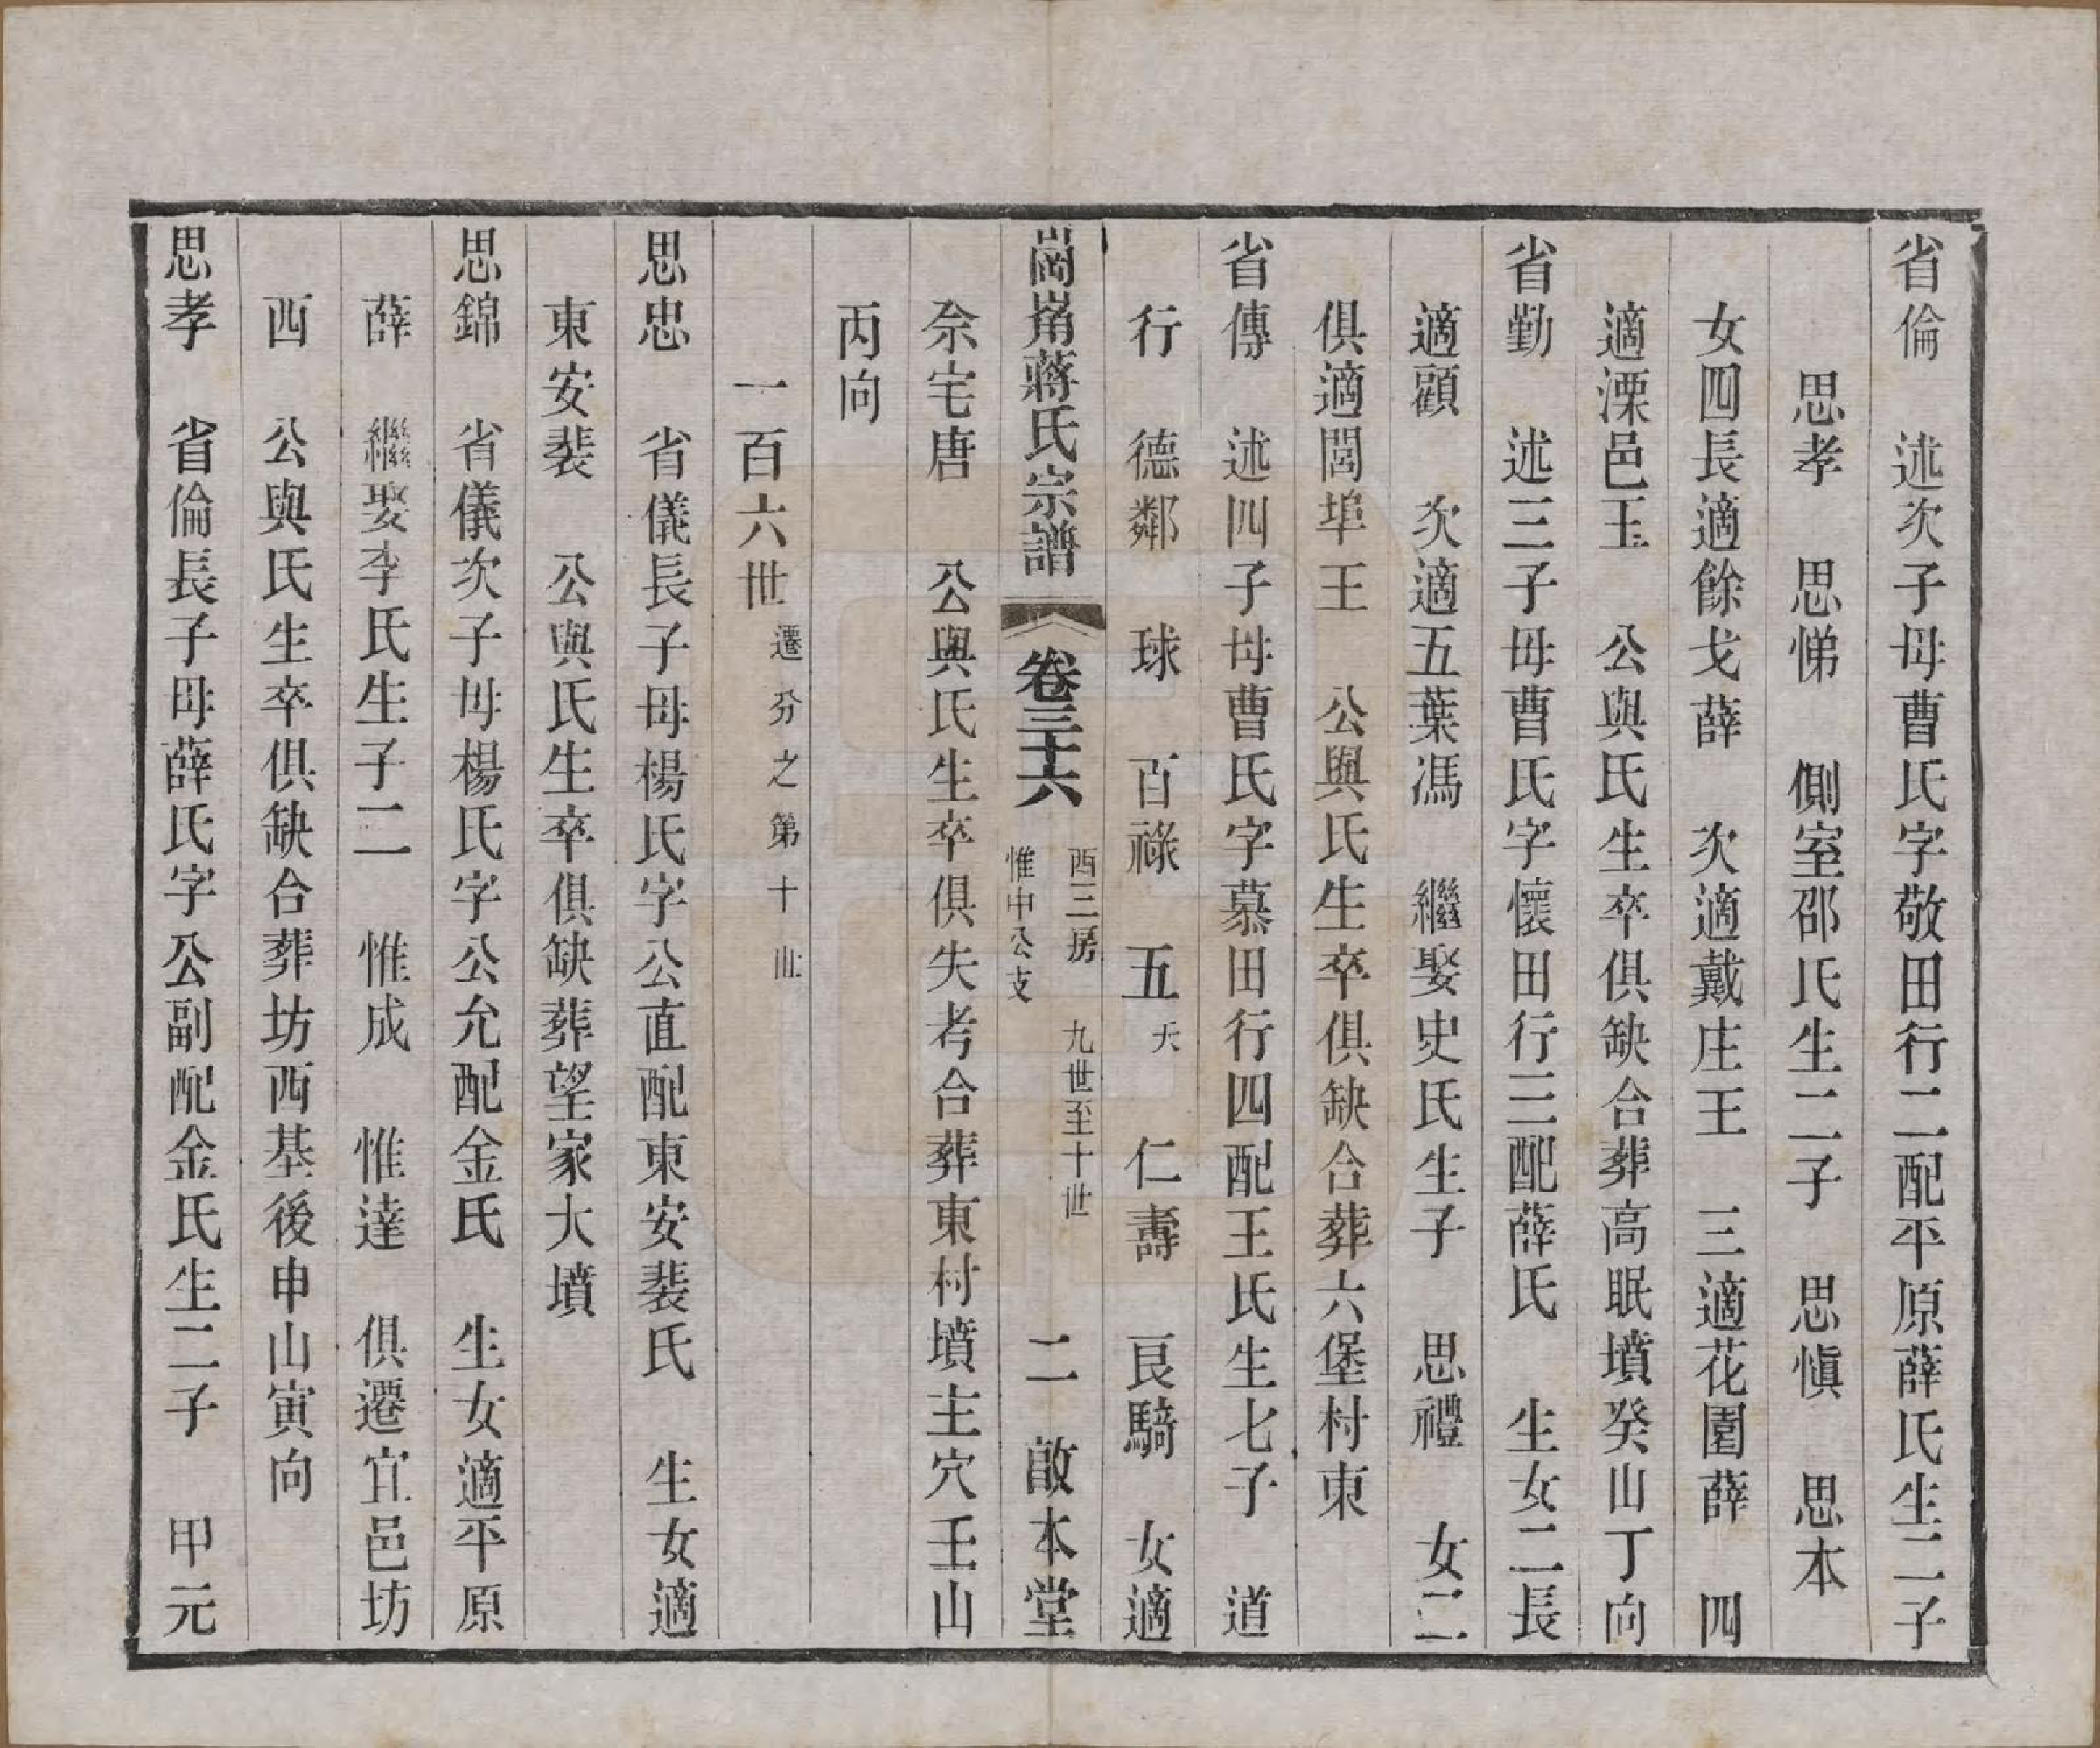 省倫　述次子母曹氏字敬田行二配平原薛氏生二子
思孝　思悌　側室邵氏生二子　思愼　思本
女四長適餘戈薛　次適戴庄王　三適花園薛　四
適溧邑玉　公與氏生卒俱缺合葬高眠墳癸山丁向
省勤　述三子母曹氏字懷田行三配薛氏　生女二長
適顧　次適五葉馮　繼娶史氏生子　思禮　女二
俱適閭埠王　公與氏生卒俱缺合葬六堡村東
省傳　述四子母曹氏字慕田行四配王氏生七子　道
行　德鄰　球　百祿　五天　仁壽　艮騎　女適
崗崗蔣氏宗譜　卷三十六　西三房惟中公支　九世至十世　二　啟本堂
佘宅唐　公與氏生卒俱失考合葬東村墳主穴壬山
丙向
一百六世遷分之第十世
思忠　省儀長子母楊氏字公直配東安裴氏　生女適
東安裴　公與氏生卒俱缺葬望家大墳
思錦　省儀次子母楊氏字公允配金氏　生女適平原
薛　繼娶李氏生子二　惟成　惟達　俱遷宜邑坊
西　公與氏生卒俱缺合葬坊西基後申山寅向
思孝　省倫長子母薛氏字公副配金氏生二子　甲元